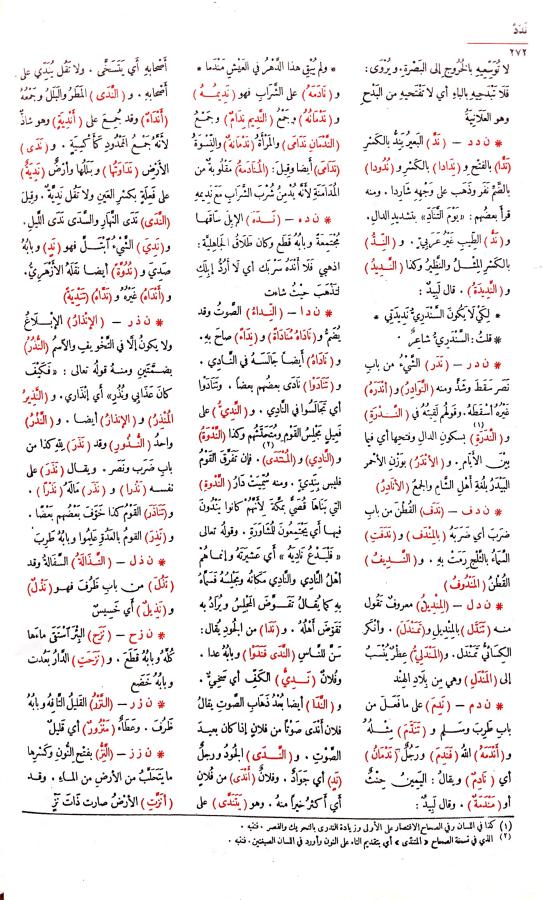 نَدَدَ
٢٧٢
لا تُوَسِّعِيهِ بالخُروج إلى البَصْرة. ويُرْوَى:
فَلَا تَبْدَحِيهِ بالباءِ أي لا تَفْتَحِيهِ من البَدْحِ
وهو العَلانِيَةُ
* ن د د – (نَدَّ) البَعِيرُ يَنِدُّ بالكَسْرِ
(نَدًّا) بالفتح و (نِدَادا) بالكسر و (نُدُودا)
بالضَّم نَفَر وذَهَب على وَجْهِهِ شارِدا. ومنه
قَرأَ بعضُهم: «يَوْمَ التَّنَادِّ» بتشديد الدال.
و(نَدٌّ) الطِيبِ غيرُ عربيّ. و (النِّدُّ)
بالكَسْرِ المِثْلُ والنَّظيرُ وكذا (النَّدِيدُ)
و (النَّدِيدَةُ). قال لَبِيدٌ:
* لِكَيْ لَا يَكُونَ السَّنْدَرِيُّ نَدِيدَتِي *
* قلتُ: السَّنْدَرِيُّ شاعِرٌ
* ن د ر – (نَدَر) الشيءُ من بابِ
نَصَر سَقَط وشَذَّ ومنه (النَّوادِرُ) و (أَنْدَرَهُ)
غَيْرُه أسْقَطَهُ. وقولُهم لَقِيتُه في (النَّدْرَةِ)
و (النَّدَرَةِ)(١) بسكون الدال وفتحها أي فيما
بين الأَيَّام. و (الأَنْدَرُ) بوَزْنِ الأحْمر
البَيْدَرُ بلُغَةِ أهْلِ الشَّامِ والجمعُ (الأَنَادِرُ)
* ن د ف – (نَدَفَ) القُطْنَ من بابِ
ضَرَب أي ضَرَبَهُ (بِالمِنْدَف) و (نَدَفَتِ)
السَّمَاءُ بالثَّلْجِ رَمَتْ به. و (النَّدِيف)
القُطْنُ (المَنْدُوفُ)
* ن د ل – (المِنْدِيلُ) معروفٌ تقول
منه (تَنَدَّلَ) بالمِنْديلِ و (تَمَنْدَلَ). وأنكر
الكِسائيُّ تمَنْدَل. و (المَنْدَلِيُّ) عِطْرٌ يُنْسَبُ
إلى (المَنْدَلِ) وهي مِن بِلادِ الهِنْد
* ن د م – (نَدِمَ) على مافَعَلَ من
بابِ طَرِبَ وسَلِمَ و (تَنَدَّم) مِثْلُهُ
و (أَنْدَمَهُ) اللهُ (فَنَدِمَ) ورَجُلٌ (نَدْمَانُ)
أي (نَادِمٌ) ويقالُ: اليَمِينُ حِنْثٌ
أو (مَنْدَمَةٌ). وقال لَبِيدٌ:
* ولم يُبْقِ هذا الدَّهْرُ في العَيْشِ مَنْدَما *
و (نَادَمَهُ) على الشَّرابِ فهو (نَدِيمُهُ)
و (نَدْمَانُهُ) وجمعُ (النَّدِيمِ نِدَامٌ) وجَمْعُ
(النَّدْمَانِ نَدَامَى) والمرأةُ (نَدْمَانَةٌ) والنِّسْوةُ
(نَدَامَى) أيضا وقيل: (المُنادَمَةُ) مَقْلُوبةٌ من
المُدَامَنةِ لأنَّهُ يُدْمِنُ شُرْبَ الشَّرابِ مع نَدِيمِهِ
* ن د ه – (نَدَهَ) الإبِلَ ساقَها
مُجْتَمِعةً وبابُهُ قَطَع وكان طَلَاقُ الجاهِليَّةِ:
اذهَبي فلا أَنْدَهُ سَرْبَكِ أي لا أَرُدُّ إِبِلَكِ
لِتَذْهَبَ حيْثُ شاءت
* ن د ا – (النِّدَاءُ) الصَّوتُ وقد
يُضَمُّ و (نَادَاهُ مُنَادَاةً) و (نِدَاءً) صاحَ بِهِ.
و (نَادَاهُ) أيضاً جالَسَهُ في النَّادِي.
و (تَنَادَوْا) نَادَى بعضُهم بعضا. وتَنَادَوْا
أي تَجَالَسُوا في النَّادِي. و (النَّدِيُّ) على
فَعِيلٍ مَجْلِسُ القومِ ومُتَحَدَّثُهم وكذا (النَّدْوَةُ)
و (النَّادِي) و (المُنْتَدَى)(٢). فإن تفرَّق القَوْمُ
فليس بنَدِيٍّ. ومنه سُمِّيَتْ دَارُ (النَّدْوَةِ)
التي بَناهَا قُصَيٌّ بمكَّةَ لأنَّهُمْ كانوا يَنْدُون
فيها أي يجتَمِعُونَ للمُشَاورةِ. وقولُه تعالى
«فَلْيَدْعُ نَادِيَهُ» أي عَشِيرَتَه وإنما هُمْ
أهْلُ النَّادي والنَّادي مكانُه ومَجْلِسُه فسَمَّاه
به كما يُقالُ تَقَوَّضَ المَجْلِسُ ويُرَادُ به
تَقَوَّض أهْلُه. و (نَدَا) من الجُودِ يُقال:
سَنَّ لِلنَّاسِ (النَّدَى فَنَدَوْا) وبابُه عَدا.
وفُلَانٌ (نَدِيُّ) الكَفِّ أي سَخِيٌّ.
و (النَّدَا) أيضا بُعْدُ ذَهابِ الصَّوتِ يقالُ
فلان أَنْدَى صَوْتاً من فلانٍ إذا كان بعيد
الصَّوتِ. و (النَّدَى) الجُودُ ورجلٌ
(نَدٍ) أي جَوَادٌ. وفلانٌ (أَنْدَى) من فُلَانٍ
أي أَكْثَرُ خيراً منه. وهو (يَتَنَدَّى) على
أصْحابِهِ أي يَتَسَخَّى. ولا تَقُل يُنَدِّي على
أَصْحابِهِ. و (النَّدَى) المَطَرُ والبَلَلُ وجَمْعُهُ
(أَنْدَاءٌ) وقد جُمِعَ على (أَنْدِيَةٍ) وهو شاذٌّ
لأَنَّهُ جَمْعُ المَمْدُودِ كأَكْسِيَةٍ. و (نَدَى)
الأرْضِ (نَدَاوَتُها) وبَلَلُها وأَرْضٌ (نَدِيَةٌ)
على فَعِلَةٍ بكسر العَينِ ولا تَقُلْ نَدِيَّةٌ. وقِيلَ
(النَّدَى) نَدَى النَّهارِ والسَّدَى نَدَى اللَّيل.
و (نَدِيَ) الشَّيءُ ابْتَلَّ فهو (نَدٍ) وبابُهُ
صَدِيَ و (نُدُوَّةً) أيضا نقَلَهُ الأزْهَرِيُّ.
و (أَنْدَاهُ) غَيرُهُ و (نَدَّاهُ) (تَنْدِيَةً)
* ن ذ ر – (الإنْذَارُ) الإبْلَاغُ
ولا يكونُ إلَّا في التَّخْوِيفِ والاسْمُ (النُّذُرُ)
بضَمَّتَينِ ومنهُ قولُه تعالى: «فَكَيْفَ
كانَ عَذَابِي ونُذُرِ» أي إنْذَارِي. و (النَّذِيرُ)
المُنْذِرُ و (الإنْذَارُ) أيضا. و (النَّذْرُ)
واحدُ (النُّذُورِ) وقد (نَذَرَ) لله كذا من
بابِ ضَرَب ونَصَر. ويقال (نَذَرَ) على
نَفْسِه (نَذْرا) و (نَذَرَ) مالَهُ (نَذْراً).
و (تَنَاذَرَ) القَوْمُ كذا خَوَّف بعضُهم بعضا.
و (نَذِرَ) القومُ بالعَدُوِّ عَلِمُوا وبابُهُ طَرِبَ
* ن ذ ل – (النَّذَالَةُ) السَّفَالَةُ وقد
(نَذُلَ) من بابِ ظَرُفَ فهو (نَذْلٌ)
و (نَذِيلٌ) أي خَسِيسٌ
* ن ز ح – (نَزَحَ) البِئْرَ استَقَى ماءَها
كُلَّهُ وبابُهُ قَطَع. و (نَزَحَتِ) الدَّارُ بَعُدَت
وبابُهُ خَضَعَ
* ن ز ر – (النَّزْرُ) القَليلُ التَّافِهُ وبابُهُ
ظَرُفَ. وعَطاءٌ (مَنْزُورٌ) أي قَلِيلٌ
* ن ز ز – (النَّزُّ) بفتح النُّونِ وكَسْرِها
ما يتَحَلَّبُ من الأرْضِ من الماءِ. وقد
(أَنَزَّتِ) الأرْضُ صارت ذَاتَ نَزٍّ
(١) كذا في اللسان وفي الصحاح الاقتصار على الأولى وزيادة الندرى بالتحريك والقصر. فتنبه.
(٢) الذي في نسخة الصحاح «المتندى» أي بتقديم التاء على النون وأورد في اللسان الصيغتين. فتنبه.